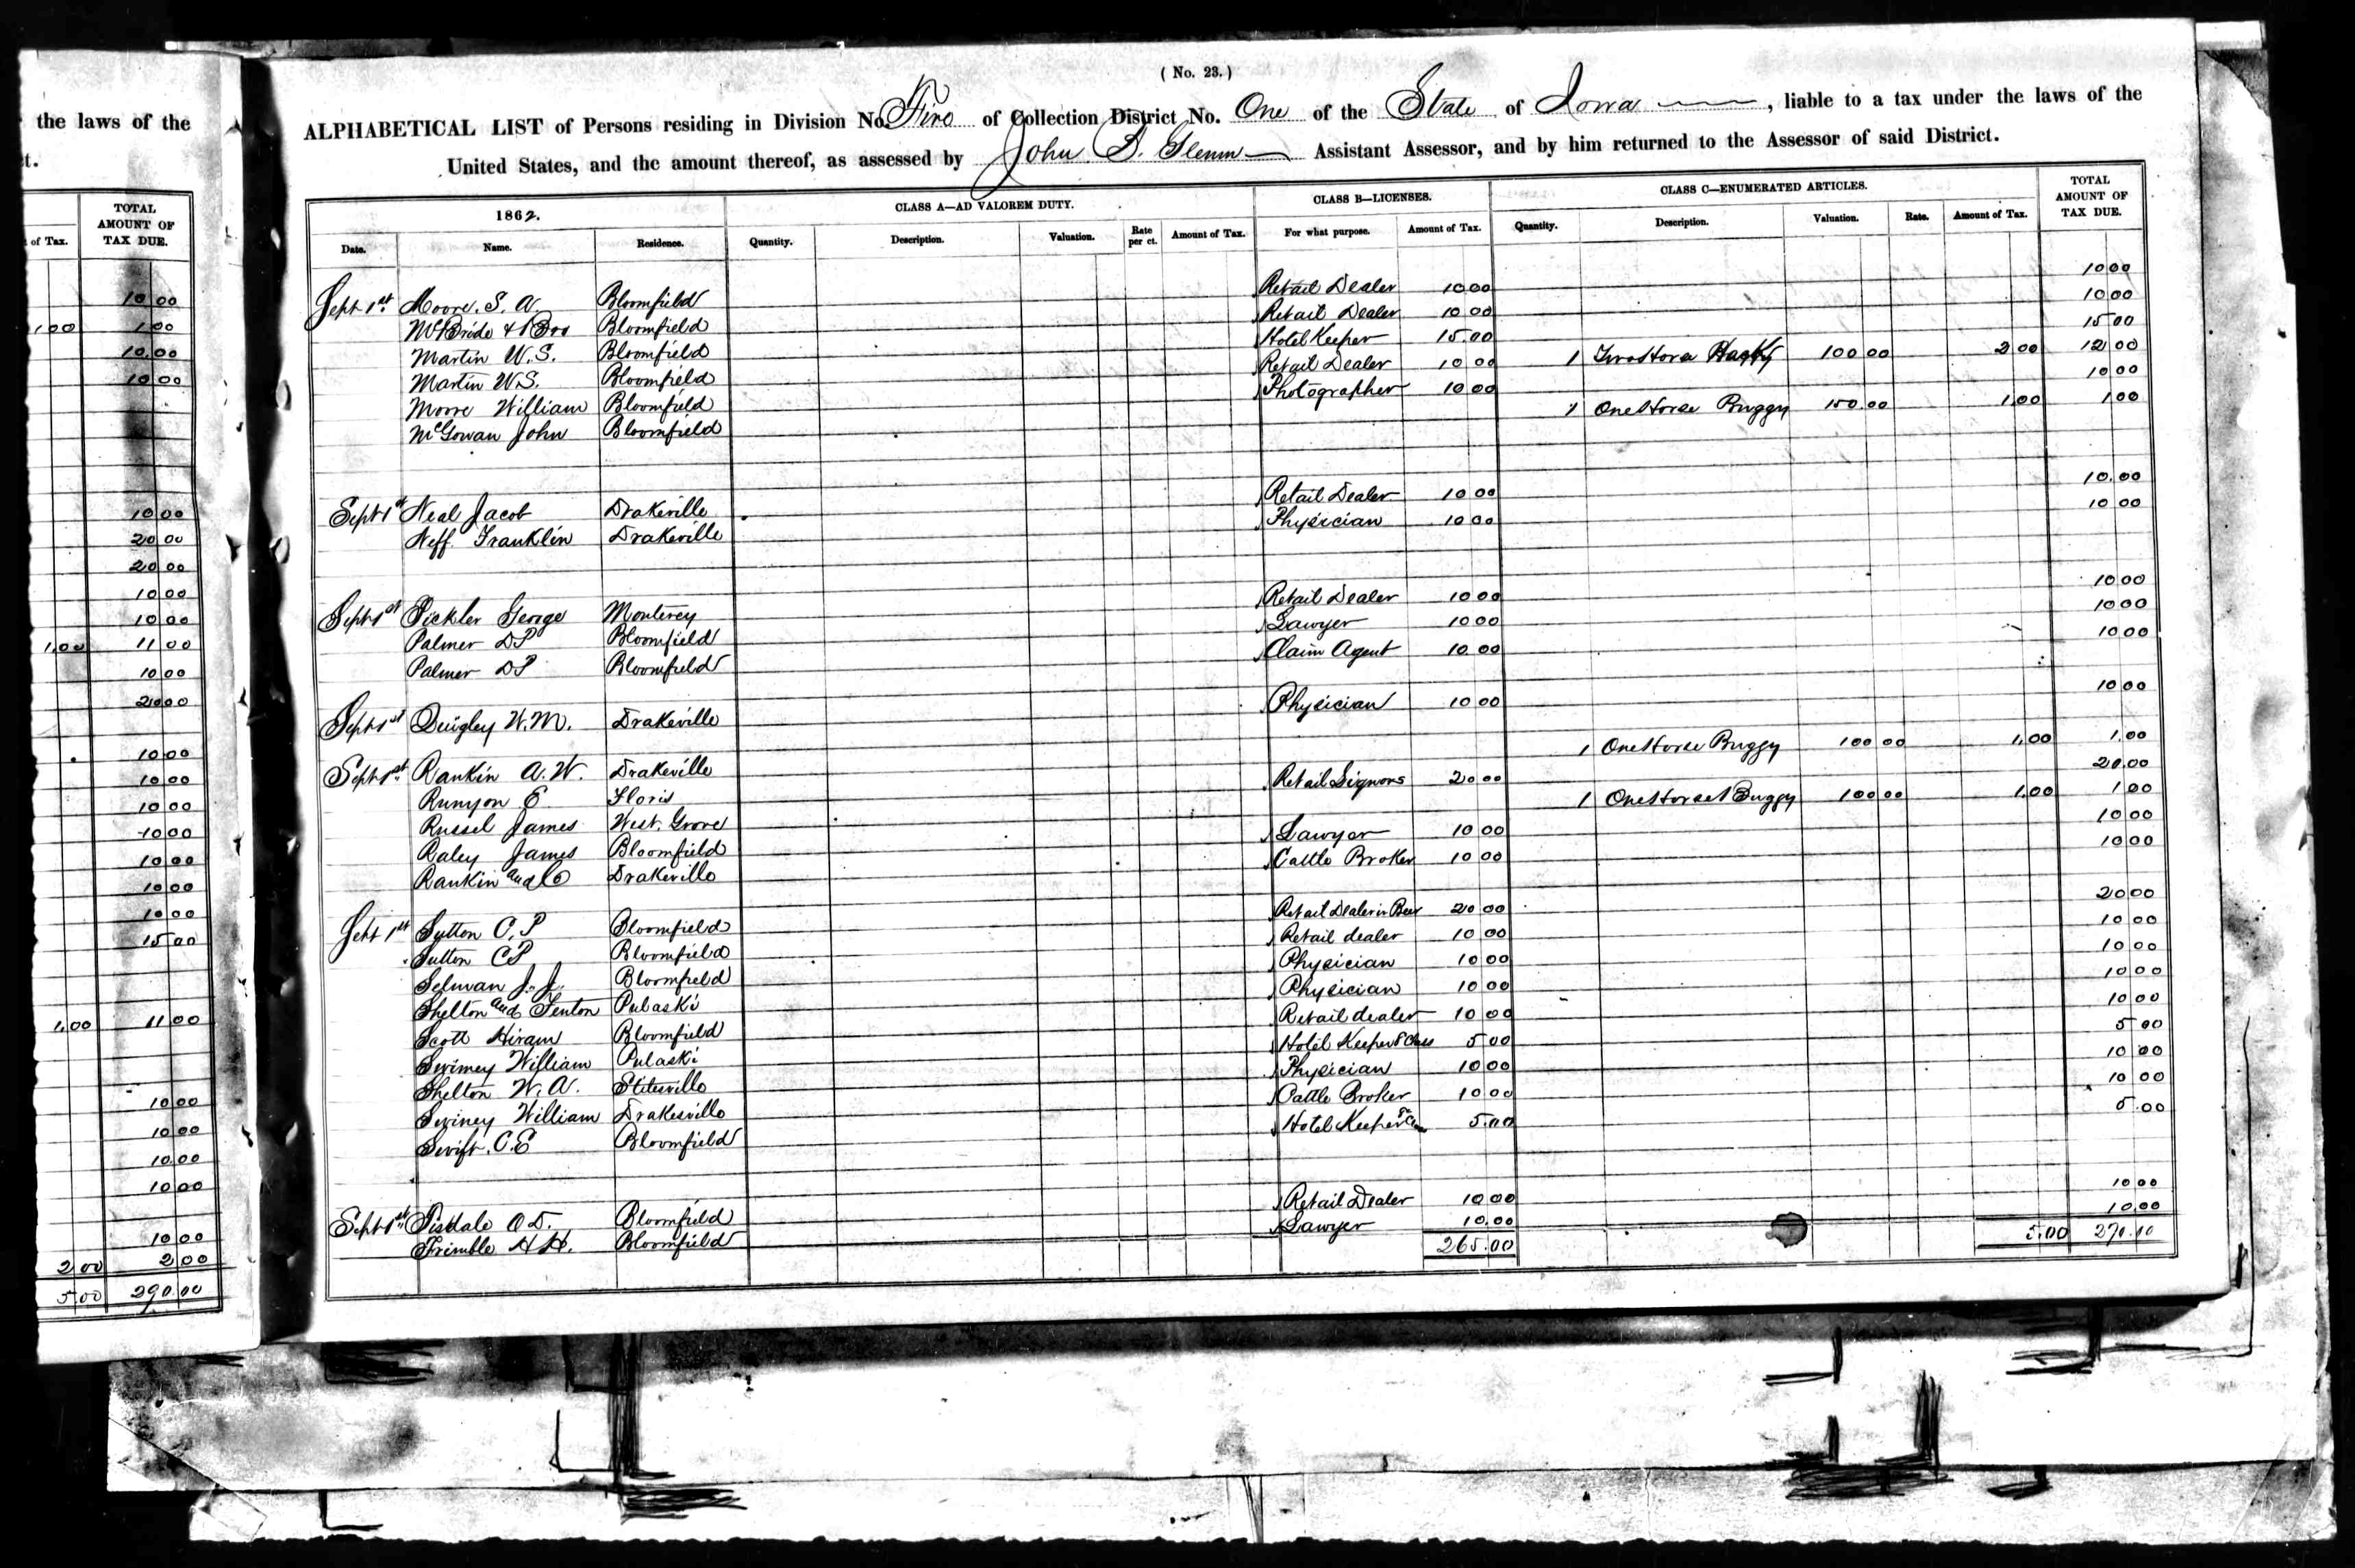 the laws of the
t.
of Tax.
TOTAL
AMOUNT OF
TAX DUE.
10 00
1 00 1 00
10.00
10 00
10 00
20 00
20 00
10 00
10 00
1.00 11 00
10 00
20 00
10 00
10 00
10 00
10 00
10 00
10 00
10 00
15 00
1.00 11 00
10 00
10 00
10 00
10 00
10 00
2 00 2 00
5 00 290 00
( No. 23. )
ALPHABETICAL LIST of Persons residing in Division No. Five of Collection District No. One of the State of Iowa, liable to a tax under the laws of the
United States, and the amount thereof, as assessed by John Assistant Assessor, and by him returned to the Assessor of said District.
1862. CLASS A—AD VALOREM DUTY. CLASS B—LICENSES. CLASS C—ENUMERATED ARTICLES. TOTAL AMOUNT OF TAX DUE.
Date. Name. Residence. Quantity. Description. Valuation. Rate per ct. Amount of Tax. For what purpose. Amount of Tax. Quantity. Description. Valuation. Rate. Amount of Tax.
Sept 1st Moore. S. A. Bloomfield Retail Dealer 10 00 10 00
McBride & Bro Bloomfield Retail Dealer 10 00 10 00
Martin W. S. Bloomfield Hotel Keeper 15.00 15 00
Martin W S. Bloomfield Retail Dealer 10 00 1 Two Horse 100 00 2 00 12 00
Moore William Bloomfield Photographer 10 00 10 00
McGowan John Bloomfield 1 One Horse Buggy 150.00 1,00 1 00
Sept 1st Neal Jacob Drakeville Retail Dealer 10 00 10.00
Neff. Franklin Drakeville Physician 10 00 10 00
Sept 1st Pickler George Monterey Retail Dealer 10 00 10 00
Palmer D P Bloomfield Lawyer 10 00 10 00
Palmer D P Bloomfield Claim Agent 10 00 10 00
Sept 1st Quigley W. M. Drakeville Physician 10 00 10 00
Sept 1st Rankin A. W. Drakeville 1 One Horse Buggy 100 00 1,00 1.00
Runyon E Floris Retail Liquors 20 00 20.00
Russel James West. Grove 1 One Horse Buggy 100 00 1,00 1 00
Raley James Bloomfield Lawyer 10 00 10 00
Rankin and Co Drakeville Cattle Broker 10 00 10 00
Sept 1st Sutton C. P Bloomfield Retail Dealer in Beer 20 00 20 00
Sutton C P Bloomfield Retail dealer 10 00 10 00
Selman J. J. Bloomfield Physician 10 00 10 00
Shelton and Fenton Pulaski Physician 10 00 10 00
Scott Hiram Bloomfield Retail dealer 10 00 10 00
William Pulaski Hotel Keeper 8 Class 5 00 5 00
Shelton W. A. Stilesville Physician 10 00 10 00
William Drakesville Cattle Broker 10 00 10 00
Swift. C. E Bloomfield Hotel Keeper 5.00 5.00
Sept 1st Tisdale O D. Bloomfield Retail Dealer 10 00 10 00
Trimble H H. Bloomfield Lawyer 10.00 10.00
265.00 5.00 270.00